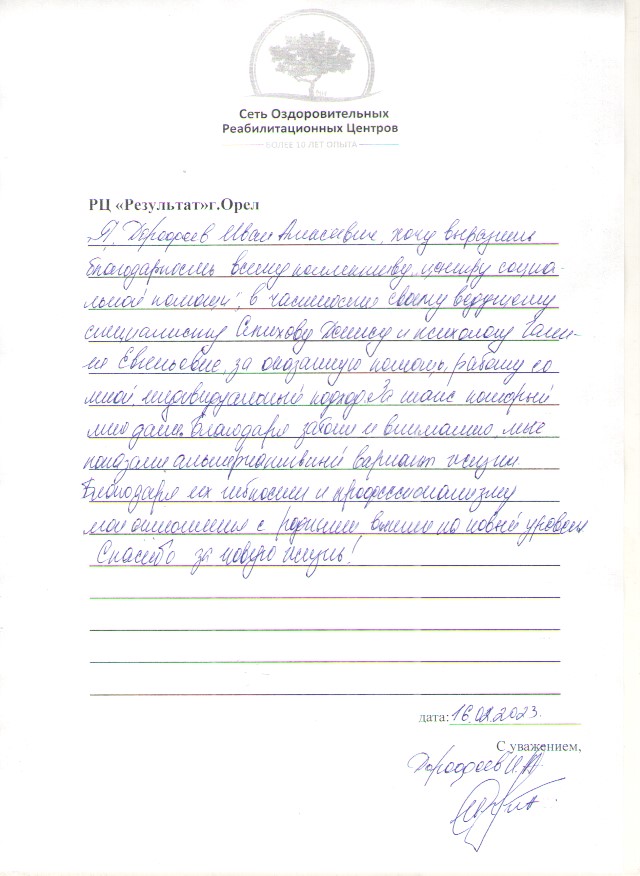 Сеть Оздоровительных
Реабилитационных Центров
БОЛЕЕ 10 ЛЕТ ОПЫТА
РЦ «Результат»г.Орел
Я, Дорофеев Иван Алексеевич, хочу выразить
благодарность всему коллективу "центру социа-
льной помощи", в частности своему ведущему
специалисту Денису и психологу Гали-
не Евгеньевне, за оказанную помощь, работу со
мной, индивидуальный подход. За шанс который
мне дали. Благодаря заботе и вниманию, мне
показали альтернативный вариант жизни.
Благодаря их гибкости и профессионализму
мои отношения с родными вышли на новый уровень
Спасибо за новую жизнь!
дата: 2023.
С уважением,
Дорофеев И.А.